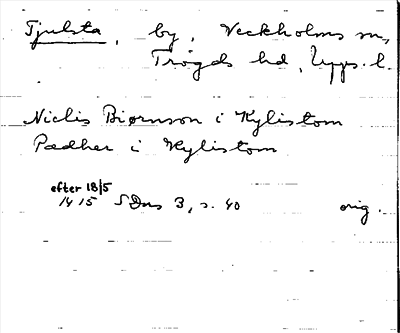 Tjulsta, by, Veckholms sn,
Trögds hd, Upps. l.
Niclis Biornson i Kylistom
Pædher i Kylistom
efter 18/5
1415 SDns 3, s. 40 orig.